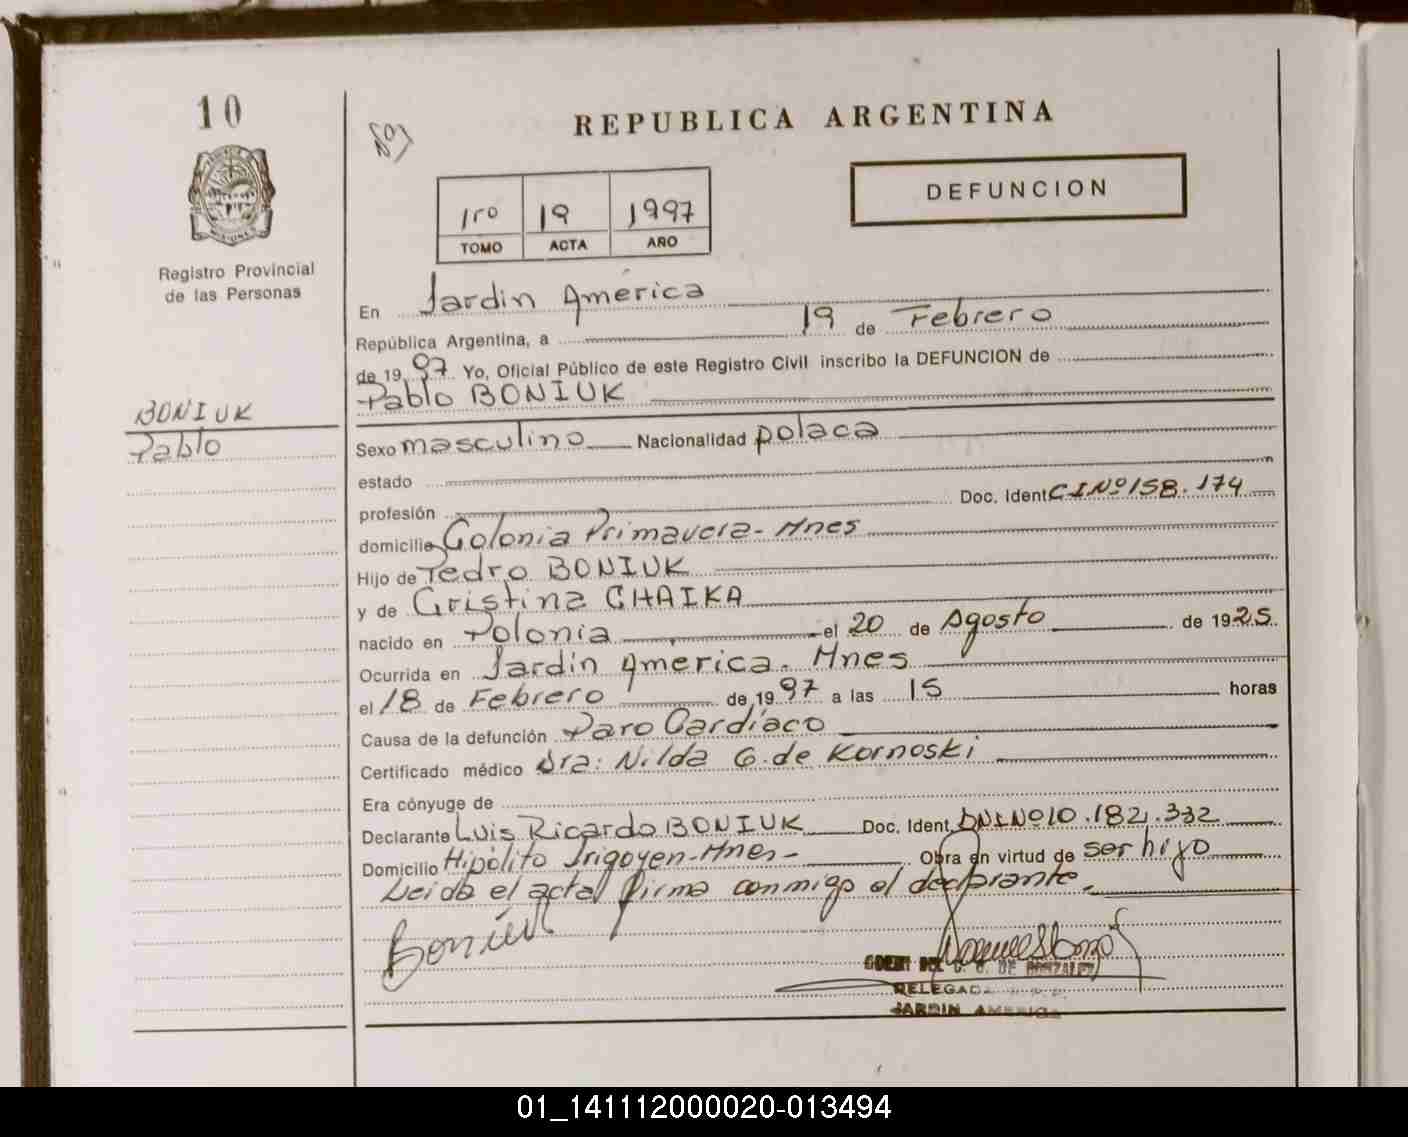 10
REPUBLICA ARGENTINA
DEFUNCION
1ro 19 1997
TOMO ACTA AÑO
Registro Provincial
de las Personas
En Jardin América
República Argentina, a 19 de Febrero
de 1997 Yo, Oficial Público de este Registro Civil inscribo la DEFUNCION de
Pablo BONIUK
BONIUK
Pablo
Sexo masculino Nacionalidad polaca
estado
profesión Doc. Ident. CINº158.174
domicilio Colonia Primavera-Mnes
Hijo de Pedro BONIUK
y de Cristina CHAIKA
nacido en Polonia el 20 de Agosto de 1925.
Ocurrida en Jardin America. Mnes
el 18 de Febrero de 1997 a las 15 horas
Causa de la defunción Paro Cardíaco
Certificado médico Dra: Nilda G. de Kornoski
Era cónyuge de
Declarante Luis Ricardo BONIUK Doc. Ident. DNINº10.182.332
Domicilio Hipólito Irigoyen-Mnes- Obra en virtud de ser hijo
Leida el acta firma conmigo el declarante.
Boniuk
DE GONZALEZ
DELEGADA
JARDIN AMERICA
01_141112000020-013494